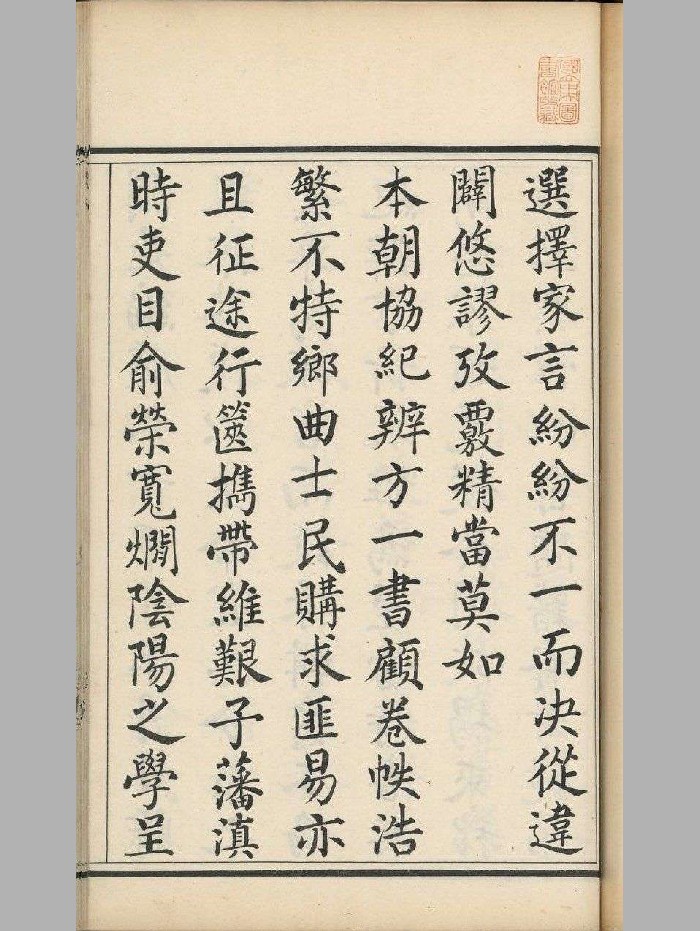 選擇家言紛紛不一而决從違
闢悠謬攷覈精當莫如
本朝協紀辨方一書顧卷帙浩
繁不特鄉曲士民購求匪易亦
且征途行篋攜帶維艱予藩滇
時吏目俞榮寬爛陰陽之學呈